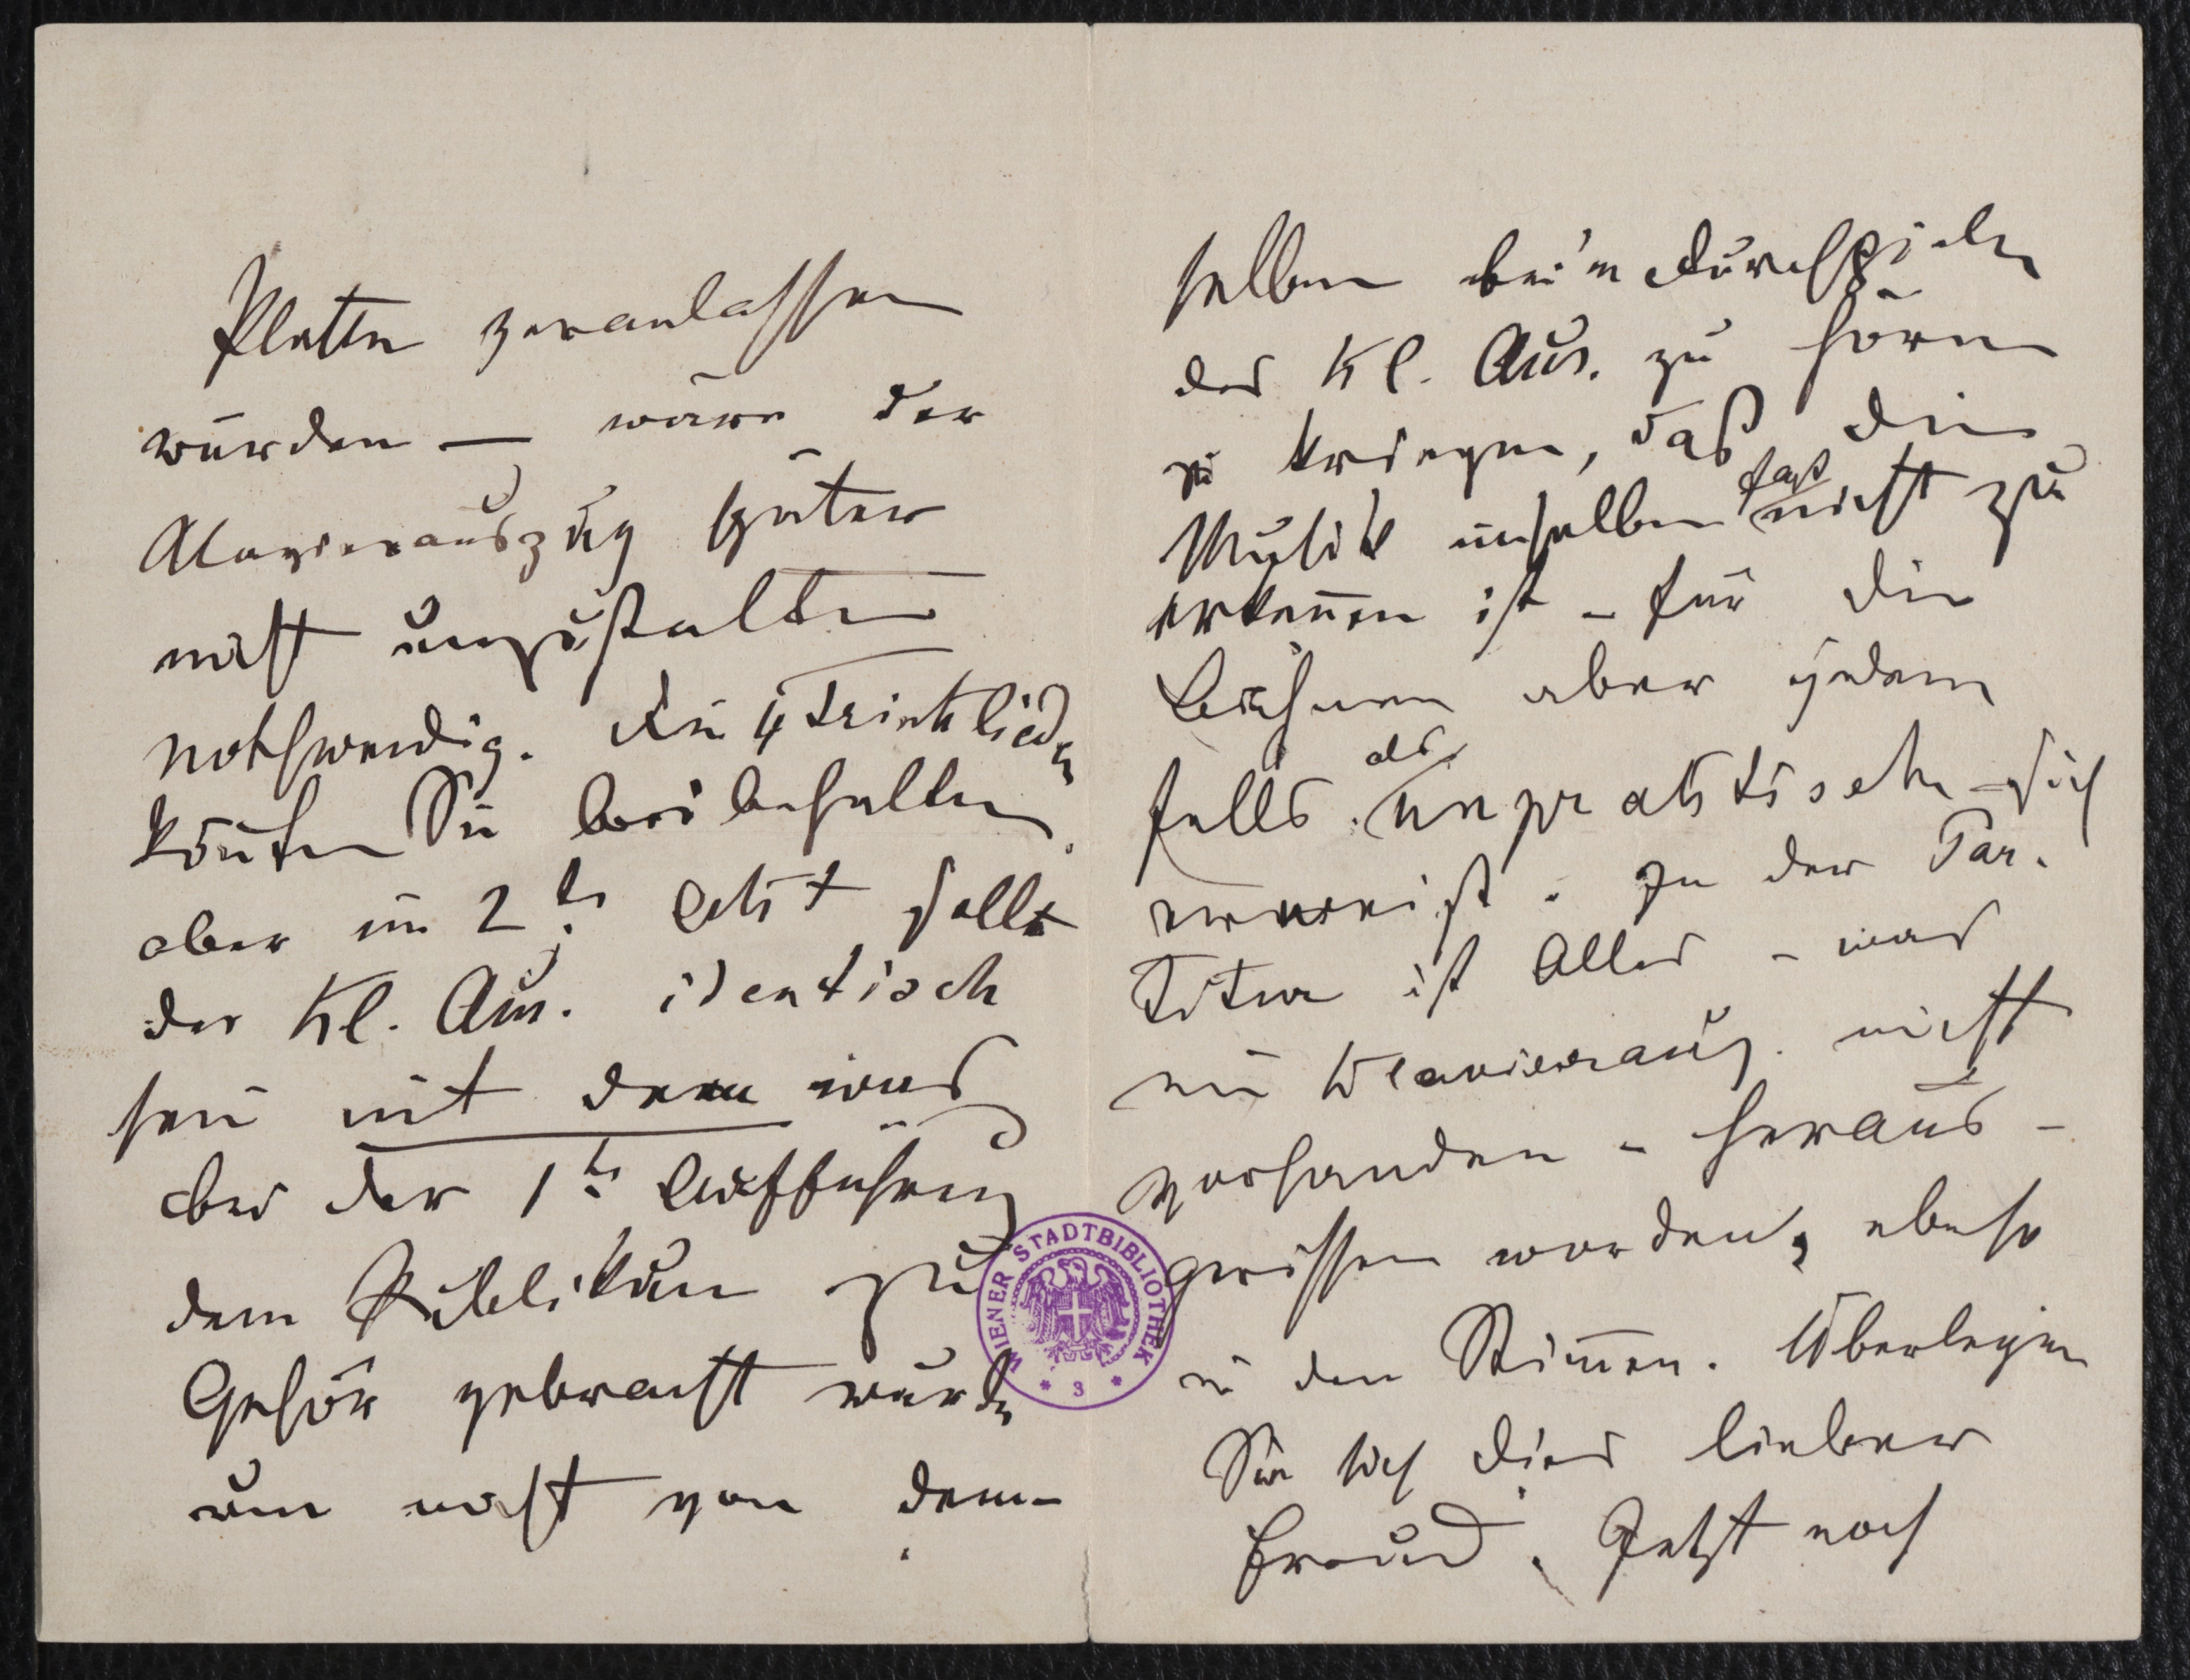 Platten veranlassen
würden — wäre der
Clavierauszug später
nicht umzugestalten
nothwendig. Die 4 Trinklieder
könten Sie beibehalten,
aber im 2ten Akt sollte
der Kl. Aus. identisch
sein mit dem was
bei der 1ten Aufführung
dem Publikum zu
Gehör gebracht wurde
um nicht von dem-
selben bei'm Durchspielen
des Kl. Aus. zu hören
zu kriegen, daß die
Musik in selben fast nicht zu
erkennen ist – für die
Bühnen aber jeden
falls als unpraktisch sich
erweist. In der Par-
titur ist Alles – was
im Klavierausz. nicht
vorhanden – heraus-
gerissen worden, ebenso
in den Stimmen. Überlegen
Sie sich dies lieber
Freund. Jetzt noch
WIENER STADTBIBLIOTHEK
* 3 *